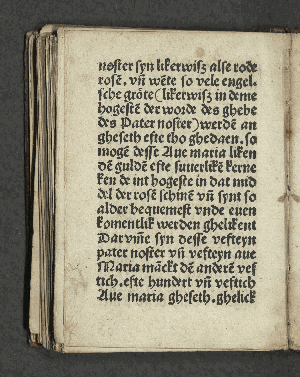 noster syn likerwisz alse rode
rosē. vn̄ wēte so vele engel-
sche grōte (likerwisz in deme
hogestē der worde des ghebe
des Pater noster) werdē an
gheseth efte tho ghedaen. so
mogē desse Aue maria liken
dē guldē efte suuerlikē kerne
ken de int hogeste in dat mid
del der rosē schinē vn̄ synt so
alder bequemest vnde euen
komentlik werden ghelikent
Darvm̄e syn desse vefteyn
pater noster vn̄ vefteyn aue
Maria māckt dē anderē vef
tich. efte hundert vn̄ veftich
Aue maria gheseth. ghelick